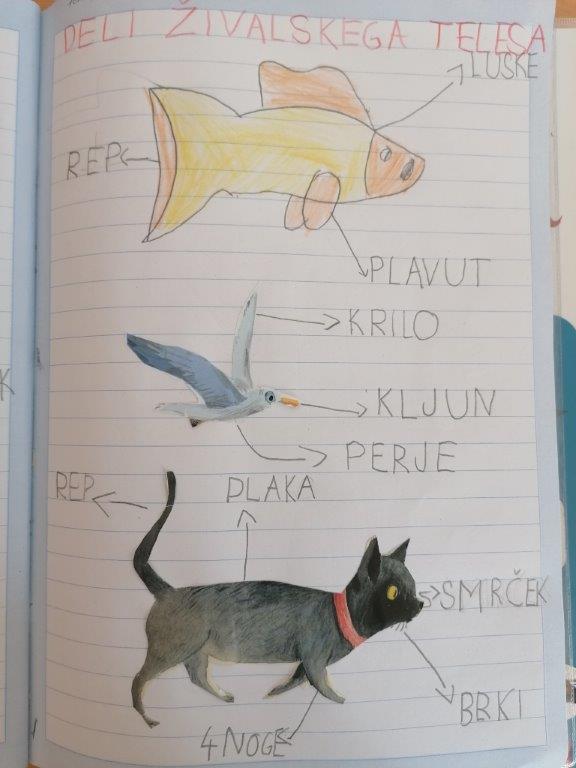 DELI ŽIVALSKEGA TELESA
LUSKE
REP
PLAVUT
KRILO
KLJUN
PERJE
REP
DLAKA
SMRČEK
BRKI
4 NOGE